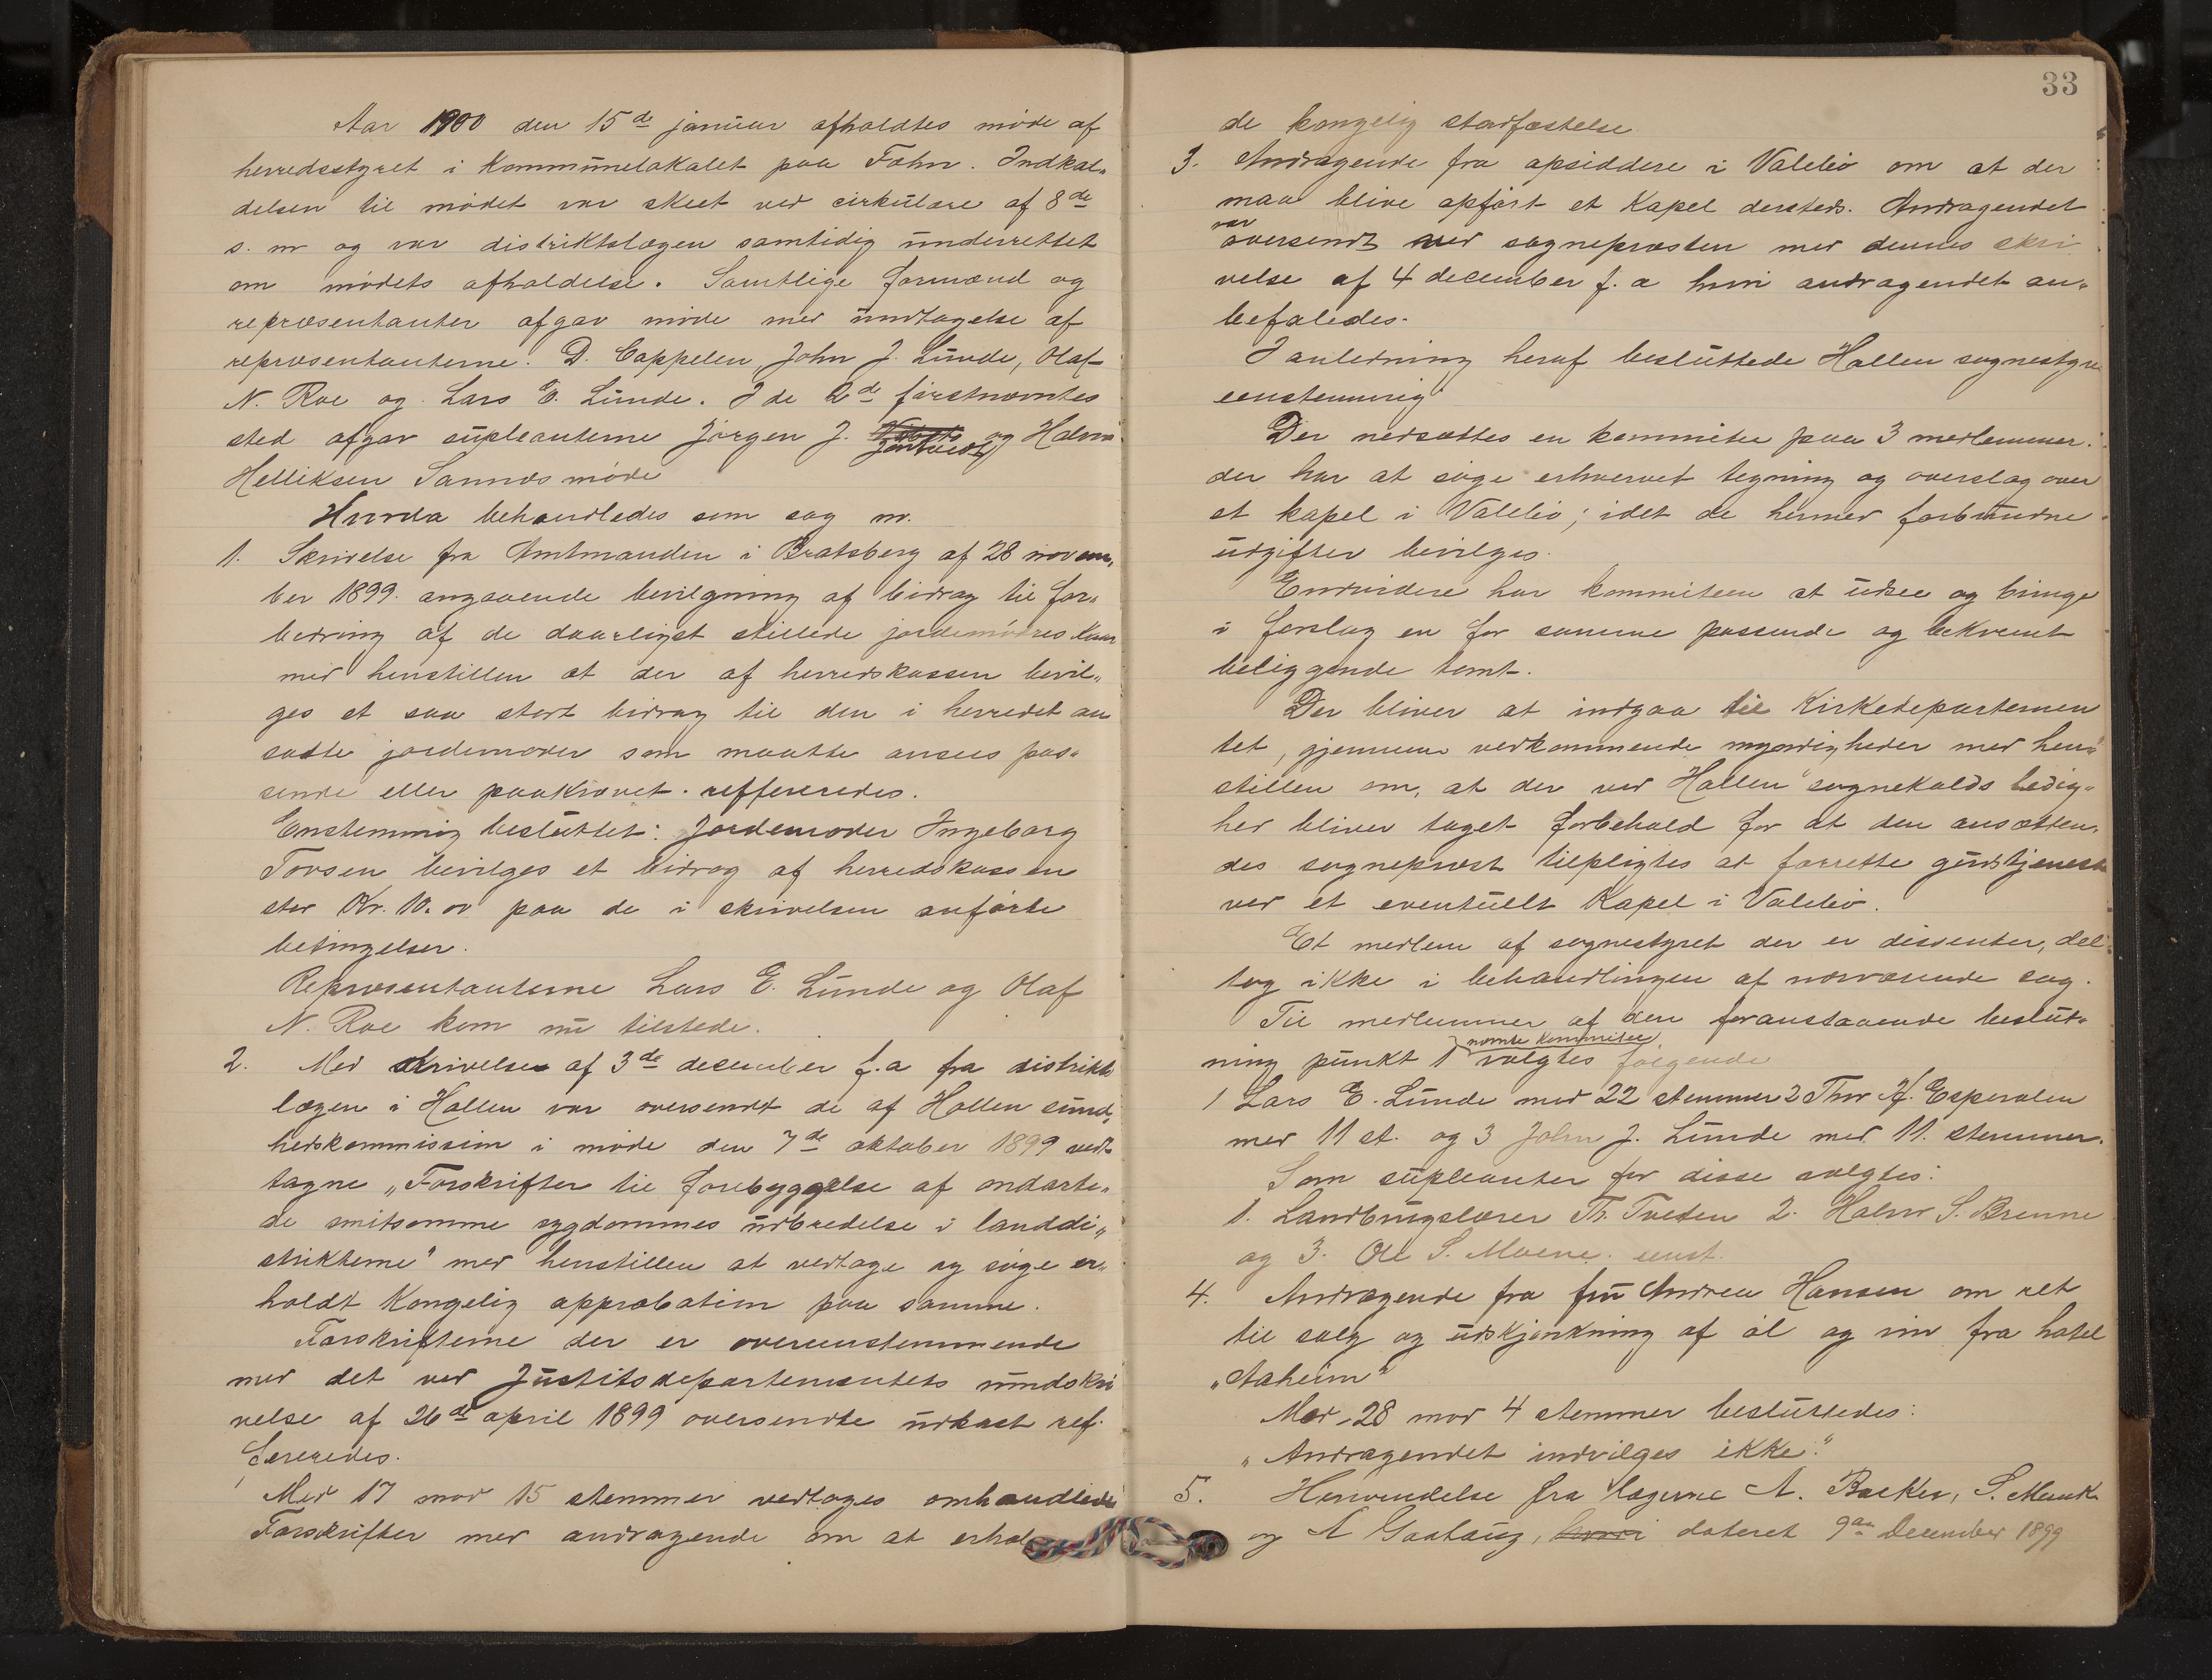 Aar 1900 den 15de januar afholdtes møde af
herredsstyret i Kommunelokalet paa Fæhn. Indkal„
delsen til mødet var skeet ved cirkulære af 8de
s. m og var distriktslægen samtidig underrettet
om mødets afholdelse. Samtlige formænd og
repræsentanter afgav møde med undtagelse af
repræsentanterne. D. Cappelen, John J. Lunde, Olaf
N. Roe og Lars E. Lunde. I de 2de førstnævntes
sted afgav supleanterne Jørgen J. og Halvor
Helliksen Sannæs møde
Hvorda behandledes som sag nr.
1. Skrivelse fra Amtmanden i Bratsberg af 28 novem„
ber 1899. angaaende bevilgning af bidrag til for„
bedring af de daarligst stillede jordemødres kaar
med henstillen at der af herredskassen bevil„
ges et saa stort bidrag til den i herredet an
satte jordemoder som maatte ansees pas„
sende eller paakrævet. reffereredes.
Enstemmig besluttet: Jordemoder Ingeborg
Tovsen bevilges et bidrag af herredskassen
stor Kr. 10.00 paa de i skrivelsen anførte
betingelser.
Repræsentanterne Lars E. Lunde og Olaf
N. Roe kom nu tilstede.
2. Med skrivelse af 3de december f.a fra distrikts
lægen i Hollen var oversendt de af Hollen sund„
hedskommission i møde den 7de oktober 1899 ved„
tagne „Forskrifter til forebyggelse af ondarte„
de smitsomme sygdommes udbredelse i landdi„
strikterne" med henstillen at vedtage og søge er„
holdt Kongelig approbation paa samme.
Forskrifterne der er overeenstemmende
med det ved Justitsdepartementets rundskri
velse af 26de april 1899 oversendte udkast ref.
fereredes.
Med 17 mod 15 stemmer vedtoges omhandlede
Forskrifter med andragende om at erhol
33
de kongelig stadfæstelse
3. Andragende fra opsiddere i Valebø om at der
maa blive opført et Kapel dersteds. Andragendet
var
oversendt ved sognepræsten med dennes skri
velse af 4 december f. a hvori andragendet an„
befaledes.
I anledning heraf besluttede Hollen sognestyre
eenstemmig
Der nedsættes en kommitee paa 3 medlemmer.
der har at søge erhvervet tegning og overslag over
et kapel i Valebø; idet de hermed forbundne
udgifter bevilges.
Endvidere har kommiteen at udsee og bringe
i forslag en for samme passende og bekvemt
beliggende tomt.
Der bliver at indgaa til Kirkedepartemen
tet, gjennem vedkommende myndigheder med hen„
stillen om, at der ved Hollen sognekalds ledig„
hed bliver taget forbehold for at den ansætten„
des sognepræst tilpligtes at forrette gudstjeneste
ved et eventuellt Kapel i Valebø.
Et medlem af sognestyret der er dissenter, del
tog ikke i behandlingen af nærværende sag.
Til medlemmer af den foranstaaende beslut„
nævnte kommitee
ning punkt 1 valgtes følgende
1 Lars E. Lunde med 22 stemmer 2 Thor H. Espevalen
med 11 st. og 3 John J. Lunde med 11. stemmer.
Som supleanter for disse valgtes:
1. Landbrugslærer Th. Tveten 2. Halvor S. Brenne
og 3. Ole S. Moene. eenst.
4. Andragende fra fru Andrea Hansen om ret
til salg og udskjænkning af øl og vin fra hotel
„Aaheim"
Med 28 mod 4 stemmer besluttedes:
„Andragendet indvilges ikke."
5. Henvendelse fra lægerne A. Backer, S. Munk
og A Gaahaug, hvori dateret 9de December 1899